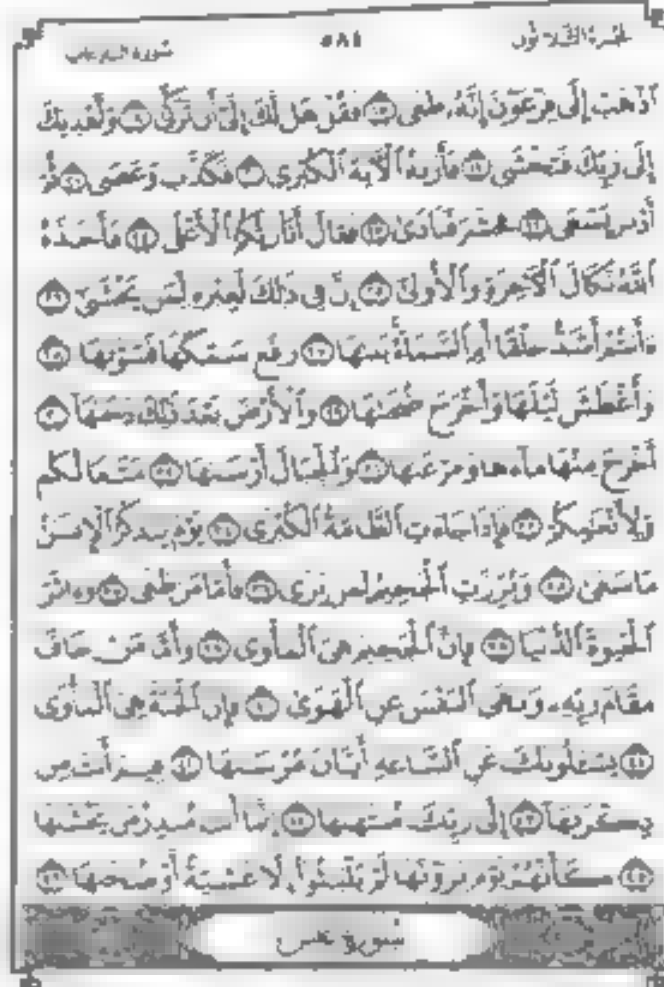 الجزء الثلاثون ٥٨٤ سورة النازعات
ٱذْهَبْ إِلَىٰ فِرْعَوْنَ إِنَّهُۥ طَغَىٰ ١٧ فَقُلْ هَل لَّكَ إِلَىٰٓ أَن تَزَكَّىٰ ١٨ وَأَهْدِيَكَ
إِلَىٰ رَبِّكَ فَتَخْشَىٰ ١٩ فَأَرَىٰهُ ٱلْءَايَةَ ٱلْكُبْرَىٰ ٢٠ فَكَذَّبَ وَعَصَىٰ ٢١ ثُمَّ
أَدْبَرَ يَسْعَىٰ ٢٢ فَحَشَرَ فَنَادَىٰ ٢٣ فَقَالَ أَنَا۠ رَبُّكُمُ ٱلْأَعْلَىٰ ٢٤ فَأَخَذَهُ
ٱللَّهُ نَكَالَ ٱلْءَاخِرَةِ وَٱلْأُولَىٰٓ ٢٥ إِنَّ فِى ذَٰلِكَ لَعِبْرَةً لِّمَن يَخْشَىٰٓ ٢٦
ءَأَنتُمْ أَشَدُّ خَلْقًا أَمِ ٱلسَّمَآءُ بَنَىٰهَا ٢٧ رَفَعَ سَمْكَهَا فَسَوَّىٰهَا ٢٨
وَأَغْطَشَ لَيْلَهَا وَأَخْرَجَ ضُحَىٰهَا ٢٩ وَٱلْأَرْضَ بَعْدَ ذَٰلِكَ دَحَىٰهَآ ٣٠
أَخْرَجَ مِنْهَا مَآءَهَا وَمَرْعَىٰهَا ٣١ وَٱلْجِبَالَ أَرْسَىٰهَا ٣٢ مَتَٰعًا لَّكُمْ
وَلِأَنْعَٰمِكُمْ ٣٣ فَإِذَا جَآءَتِ ٱلطَّآمَّةُ ٱلْكُبْرَىٰ ٣٤ يَوْمَ يَتَذَكَّرُ ٱلْإِنسَٰنُ
مَا سَعَىٰ ٣٥ وَبُرِّزَتِ ٱلْجَحِيمُ لِمَن يَرَىٰ ٣٦ فَأَمَّا مَن طَغَىٰ ٣٧ وَءَاثَرَ
ٱلْحَيَوٰةَ ٱلدُّنْيَا ٣٨ فَإِنَّ ٱلْجَحِيمَ هِىَ ٱلْمَأْوَىٰ ٣٩ وَأَمَّا مَنْ خَافَ
مَقَامَ رَبِّهِۦ وَنَهَى ٱلنَّفْسَ عَنِ ٱلْهَوَىٰ ٤٠ فَإِنَّ ٱلْجَنَّةَ هِىَ ٱلْمَأْوَىٰ
٤١ يَسْـَٔلُونَكَ عَنِ ٱلسَّاعَةِ أَيَّانَ مُرْسَىٰهَا ٤٢ فِيمَ أَنتَ مِن
ذِكْرَىٰهَآ ٤٣ إِلَىٰ رَبِّكَ مُنتَهَىٰهَآ ٤٤ إِنَّمَآ أَنتَ مُنذِرُ مَن يَخْشَىٰهَا
٤٥ كَأَنَّهُمْ يَوْمَ يَرَوْنَهَا لَمْ يَلْبَثُوٓا۟ إِلَّا عَشِيَّةً أَوْ ضُحَىٰهَا ٤٦
سورة عبس